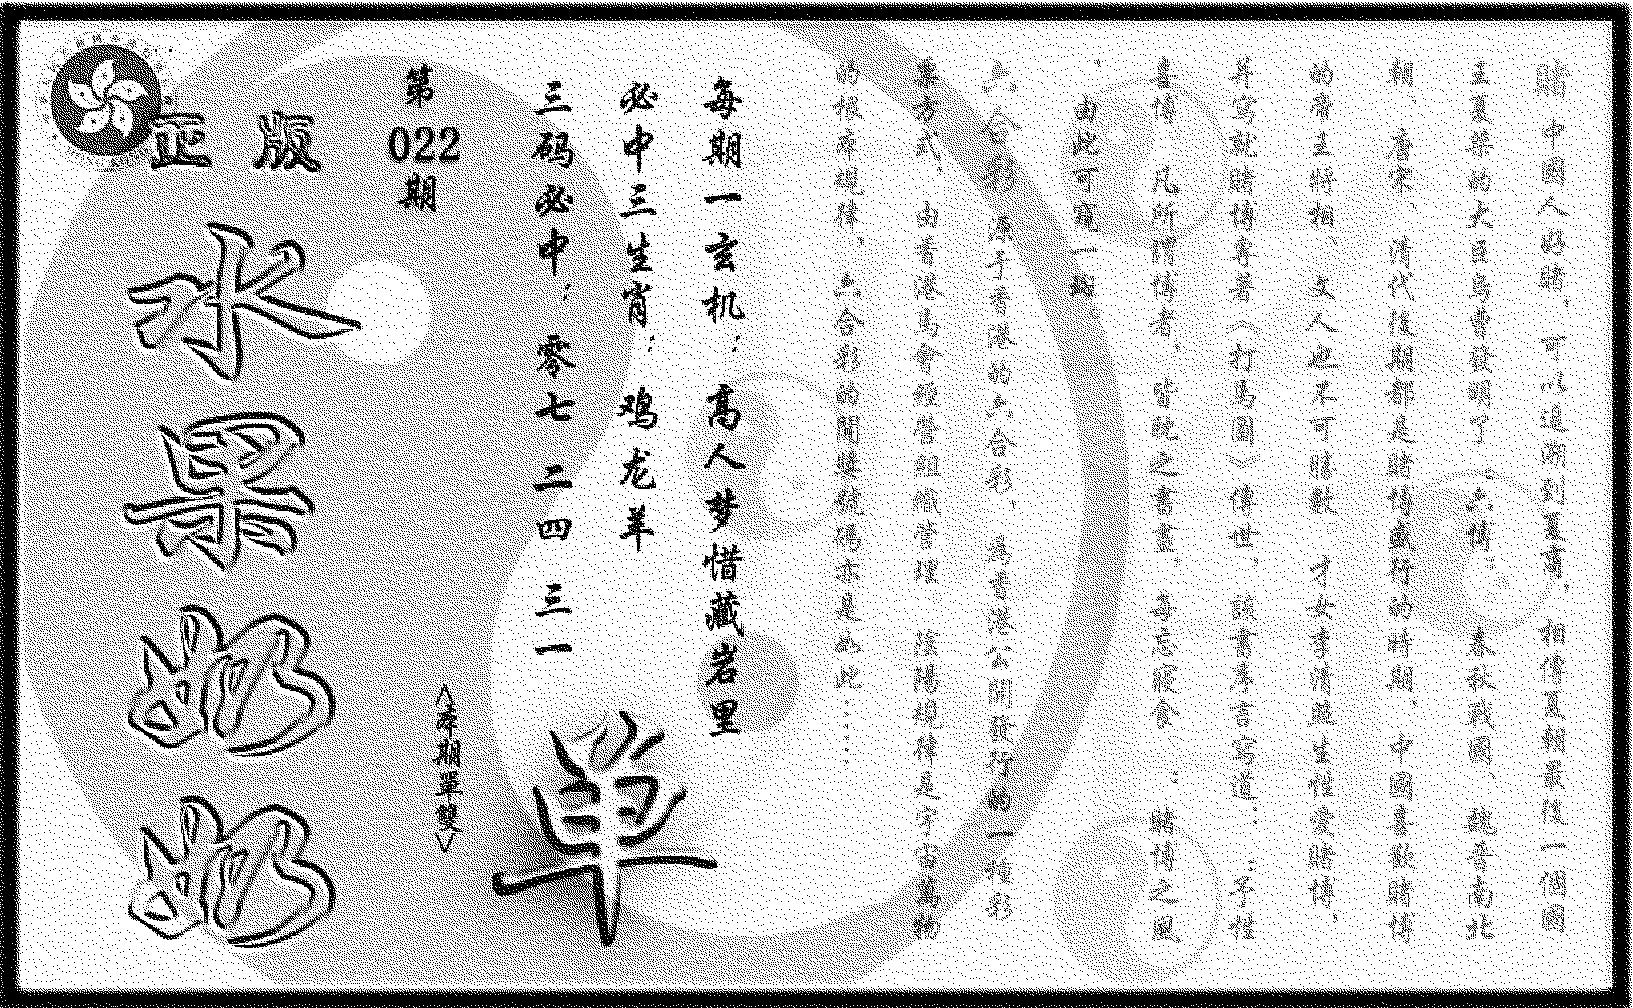 賭 中國人好賭，可以追溯到夏商，相傳夏朝最後一個國
王夏桀的大臣烏曹發明了：六博；春秋戰國、魏晉南北
朝、唐宋、清代後期都是賭博盛行的時期，中國喜歡賭博
的帝王將相、文人也不可勝數，才女李清照生性愛賭博，
并寫就賭博專著《打馬圖》傳世，該書序言寫道：：予性
喜博，凡所謂博者，皆耽之書畫，每忘寢食 ；賭博之風
，由此可窺一斑
六合彩，源于香港的六合彩，為香港公開發行的一種彩
票方式，由香港馬會經營組織管理 陰陽規律是宇宙萬物
的根本規律，六合彩的開獎號碼亦是如此……
每期一玄机：高人梦惜藏岩里
必中三生肖：鸡龙羊
三码必中：零七 二四 三一
單
第022期
<本期單雙>
正版
水果奶奶